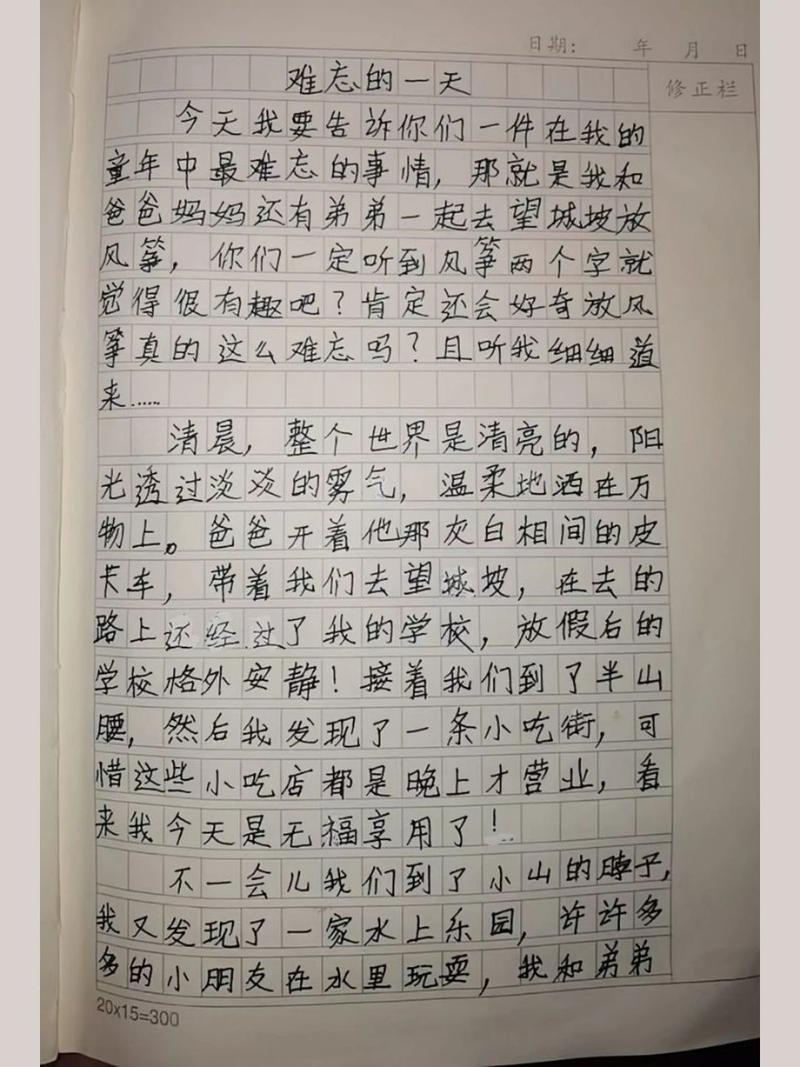 日期： 年 月 日
修正栏
难忘的一天
今天我要告诉你们一件在我的
童年中最难忘的事情，那就是我和
爸爸妈妈还有弟弟一起去望城坡放
风筝，你们一定听到风筝两个字就
觉得很有趣吧？肯定还会好奇放风
筝真的这么难忘吗？且听我细细道
来……
清晨，整个世界是清亮的，阳
光透过淡淡的雾气，温柔地洒在万
物上。爸爸开着他那灰白相间的皮
卡车，带着我们去望城坡，在去的
路上还经过了我的学校，放假后的
学校格外安静！接着我们到了半山
腰，然后我发现了一条小吃街，可
惜这些小吃店都是晚上才营业，看
来我今天是无福享用了！
不一会儿我们到了小山的脖子，
我又发现了一家水上乐园，许许多
多的小朋友在水里玩耍，我和弟弟
20x15=300